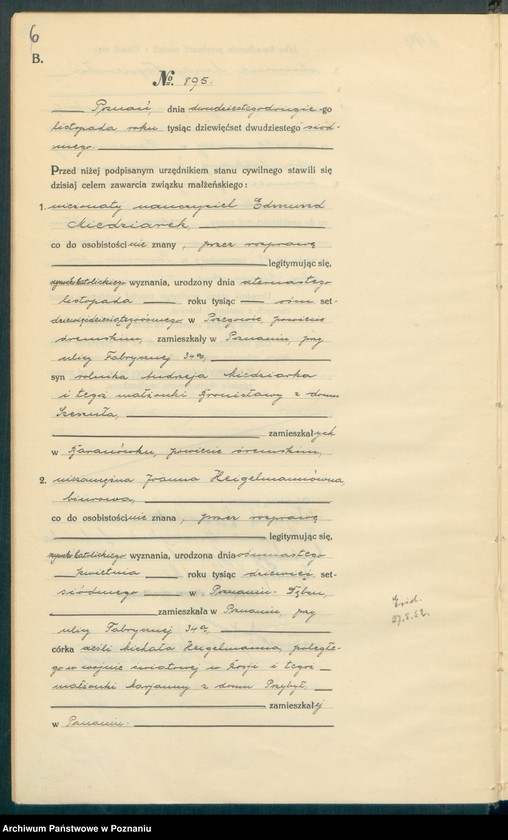 6
B.
No. 895.
Poznań, dnia dwudziestegodrugie-go
listopada roku tysiąc dziewięćset dwudziestego siód-
mego.
Przed niżej podpisanym urzędnikiem stanu cywilnego stawili się
dzisiaj celem zawarcia związku małżeńskiego:
1. nieżonaty nauczyciel Edmund
Niedziarek,
co do osobistości nie znany, przez rozprawę
legitymując się,
rzymskokatolickiego wyznania, urodzony dnia czternastego
listopada roku tysiąc ośm set-
dziewięćdziesiątegoósmego w Pożegowie, powiecie
śremskim, zamieszkały w Poznaniu, przy
ulicy Fabrycznej 34a,
syn rolnika Andrzeja Niedziarka
i tegoż małżonki Bronisławy z domu
zamieszkałych
w Baranówku, powiecie śremskim,
2. niezamężna Joanna Heigelmannówna,
biurowa,
co do osobistości nie znana, przez rozprawę
legitymując się,
rzymskokatolickiego wyznania, urodzona dnia ósmnastego
kwietnia roku tysiąc dziewięć set-
siódmego w Poznaniu-Dębcu,
zamieszkała w Poznaniu, przy
ulicy Fabrycznej 34a,
córka Michała Heigelmanna, poległe-
go w wojnie światowej w Rosji i tegoż
małżonki Marjanny z domu Przybył,
zamieszkałej
w Poznaniu.
Archiwum Państwowe w Poznaniu